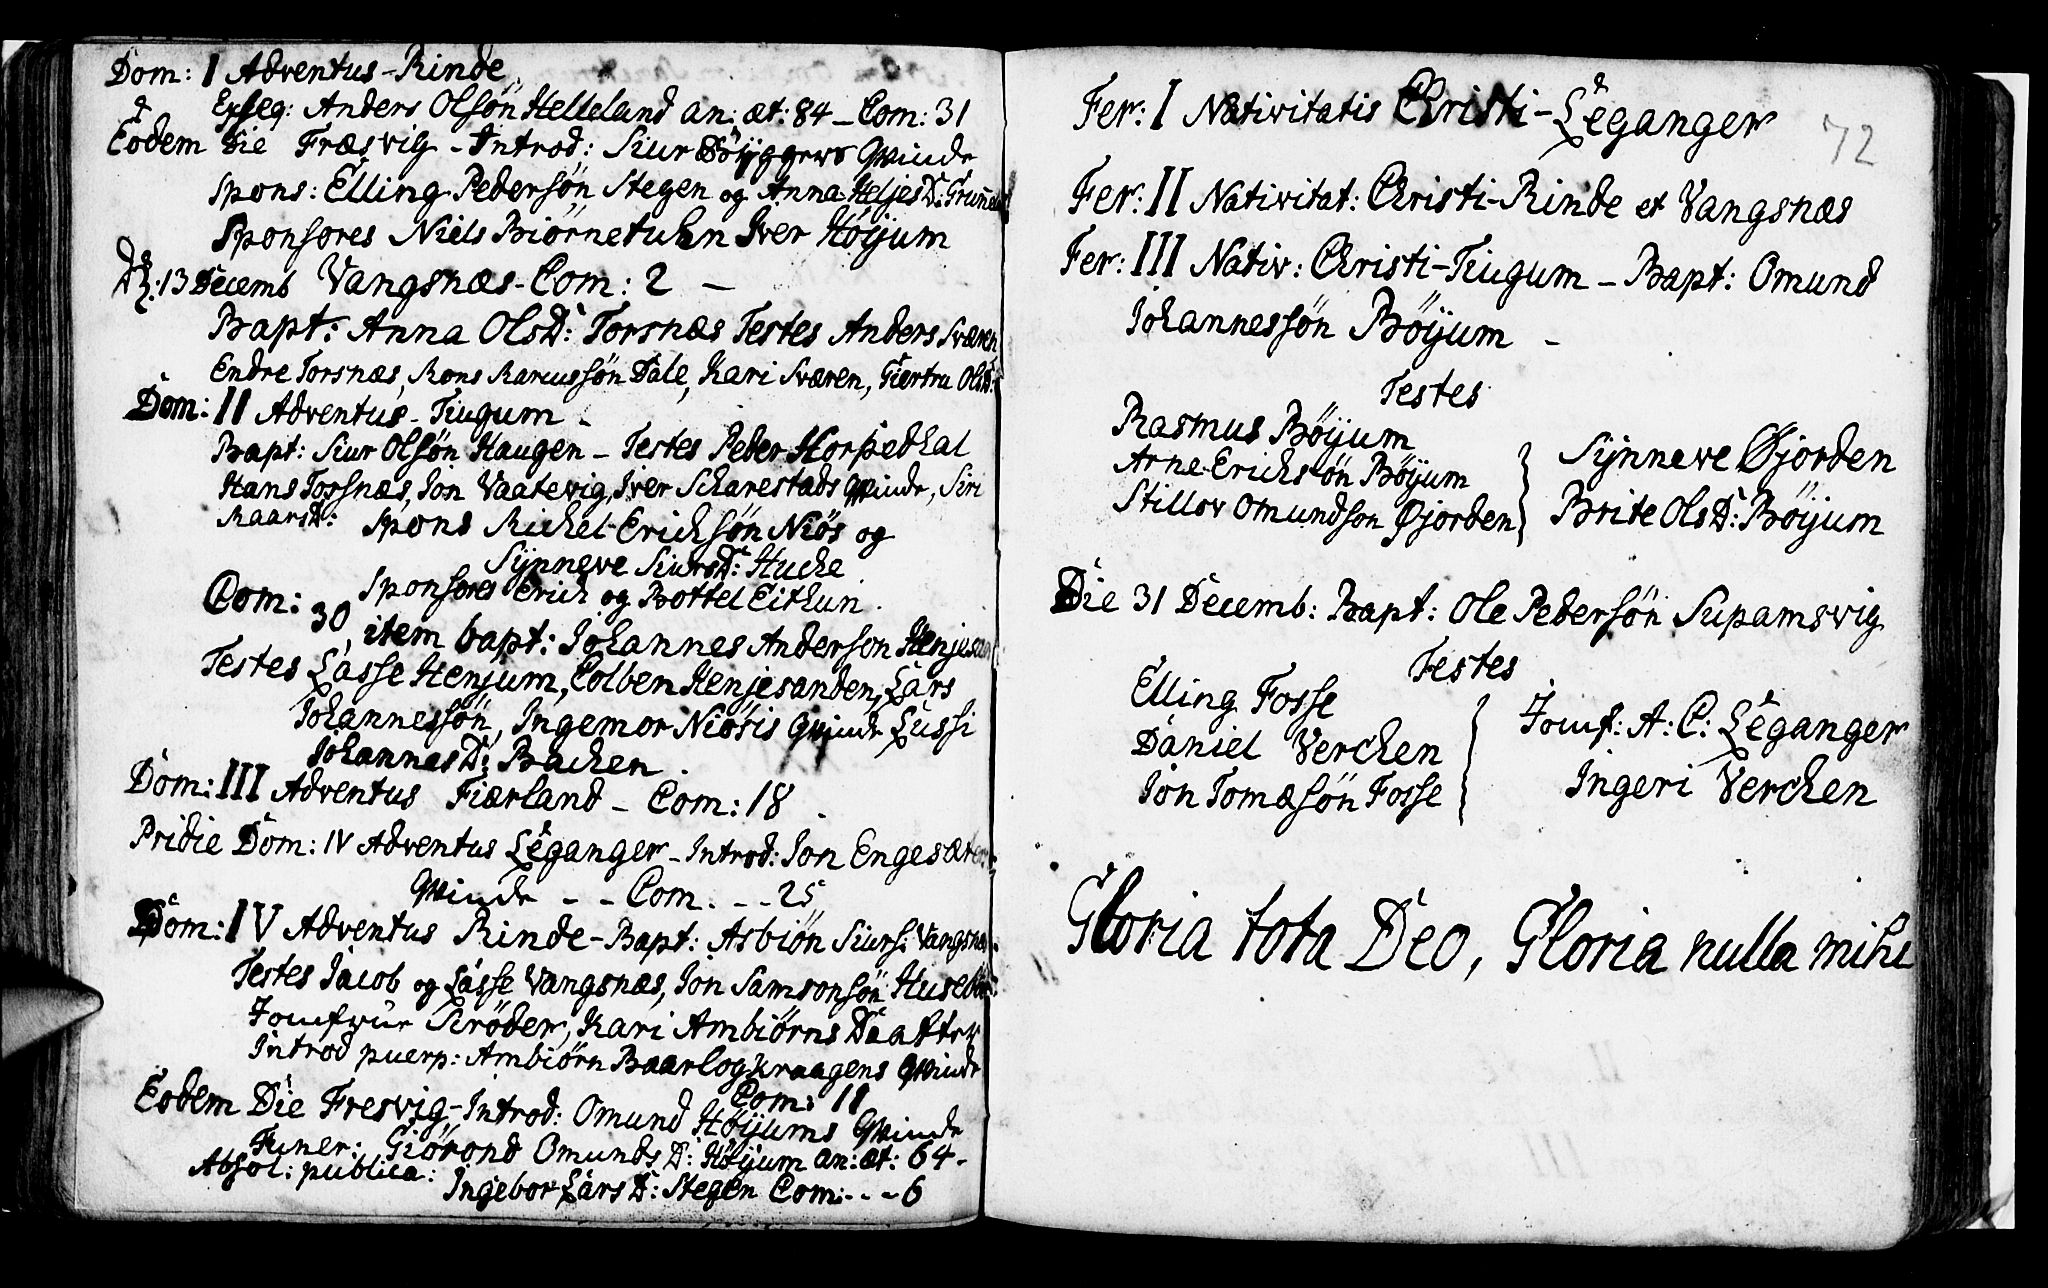 Dom: I Adventus - Rinde
Exseq: Anders Olsøn Helleland an: æt: 84 - Com: 31
Eodem Die Fræsvig - Introd: Siur Qvinde
Spons: Elling Pedersøn Stegen og Anna HeljesD:
Sponsores Niels Biørnetuhn Iver Høyum
13 Decemb Vangsnæs - Com: 2 -
Bapt: Anna OlsD: Torsnæs Testes Anders Sværen
Endre Torsnæs, Mons Marcussøn Dale, Kari Sværen, Giertru OlsD:
Dom: II Adventus - Tiugum -
Bapt: Siur Olsøn Haugen - Testes Peder Horpedhal
Hans Torsnæs, Jon Vaatevig, Iver Scharestads Qvinde, Siri
MaarsD: Spons Michel Erichsøn Niøs og
Synneve SiursD: Huche
Sponsores Erich og Bottel Eithun.
Com: 30, item bapt: Johannes Anderson
Testes Lasse Henjum, Colben Henjesanden, Lars
Johannessøn, Ingemor Niøsis Qvinde Lussi
JohannesD: Bachen.
Dom: III Adventus Fiærland - Com: 18.
Pridie Dom: IV Adventus Leganger - Introd: Jon
Qvinde - - Com. - - 25
Dom: IV Adventus Rinde - Bapt: Asbiøn Siurs:
Testes Jacob og Lasse Vangsnæs, Jon Samsonsøn
Jomfrue Scrøder, Kari Ambiørns Daatter
Introd puerp: Ambiørn Baarlogkraagens Qvinde
Com: 11
Eodem Die Fresvig, - Introd: Omund Høyums Qvinde
Funer: Giørond Omunds D: Høyum an: æt: 64 -
Absol: publica: Ingebor Lars D: Stegen Com: - - - 6
72
Fer: I Nativitatis Christi - Leganger
Fer: II Nativitat: Christi - Rinde et Vangsnæs
Fer: III Nativ: Christi - Tiugum - Bapt: Omund
Johannessøn Bøyum -
Testes
Rasmus Bøyum
Arne Erichsøn Bøyum
Stillov Omundson Øjorden
Synneve Øjorden
Brite OlsD: Bøyum
Die 31 Decemb: Bapt: Ole Pedersøn Supamsvig
Testes
Elling Fosse
Daniel Verchen
Jon Tomæsøn Fosse
Jomf: A: C: Leganger
Ingeri Verchen
Gloria tota Deo, Gloria nulla mihi